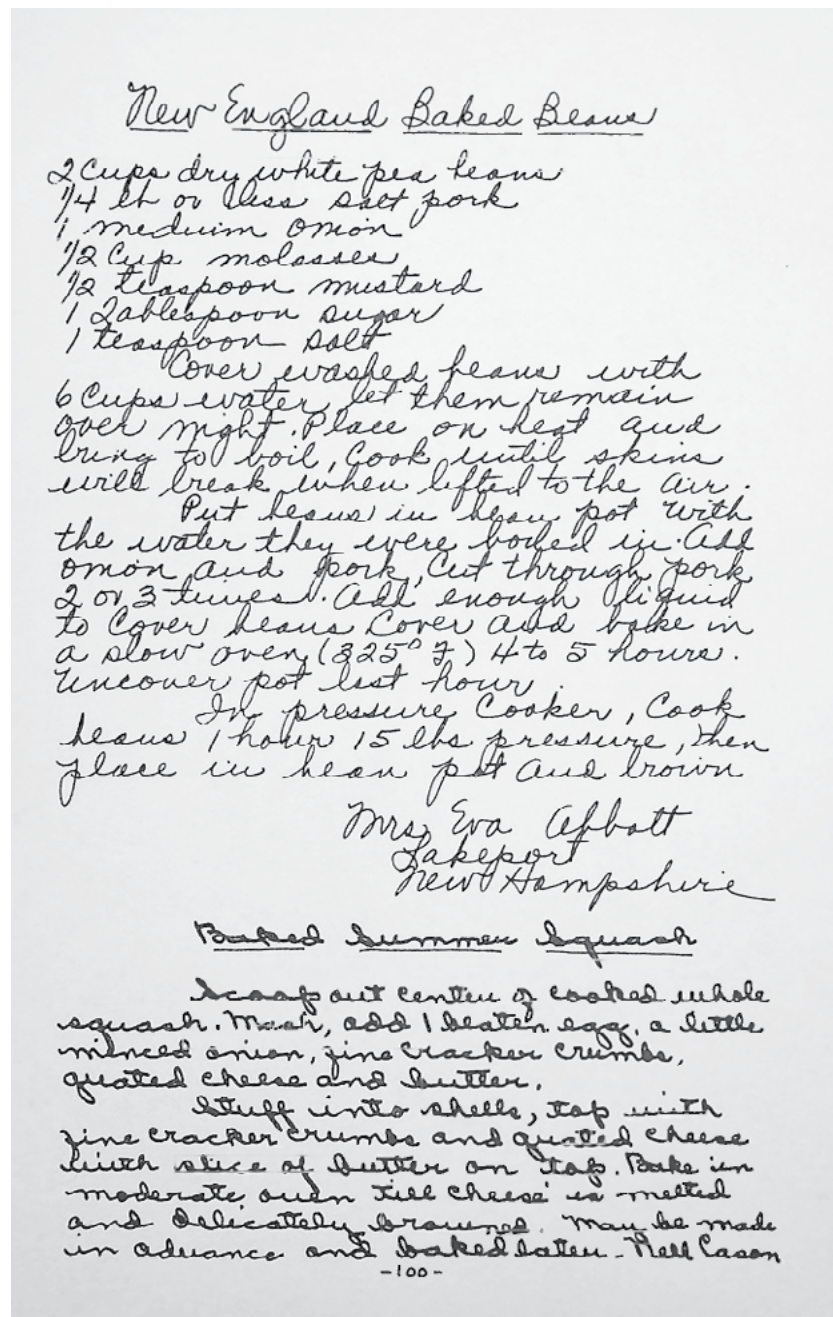 New England Baked Beans
2 Cups dry white pea beans
1/4 lb or less salt pork
1 meduim onion
1/2 Cup molasses
1/2 teaspoon mustard
1 Tablespoon sugar
1 teaspoon salt
Cover washed beans with
6 Cups water, let them remain
over night. Place on heat and
bring to boil, Cook until skins
will break when lifted to the air.
Put beans in bean pot with
the water they were boiled in. Add
onion and pork, Cut through pork
2 or 3 times. Add enough liquid
to Cover beans Cover and bake in
a slow oven (325° F) 4 to 5 hours.
Uncover pot last hour.
In pressure Cooker, Cook
beans 1 hour 15 lbs pressure, then
place in bean pot and brown
Mrs. Eva Abbott
Lakeport
New Hampshire
Baked Summer Squash
Scoop out center of cooked whole
squash. Mash, add 1 beaten egg, a little
minced onion, fine cracker crumbs,
grated cheese and butter.
Stuff into shells, top with
fine cracker crumbs and grated cheese
with slice of butter on top. Bake in
moderate oven till cheese is melted
and delicately browned. May be made
in advance and baked later - Nell Cason
-100-